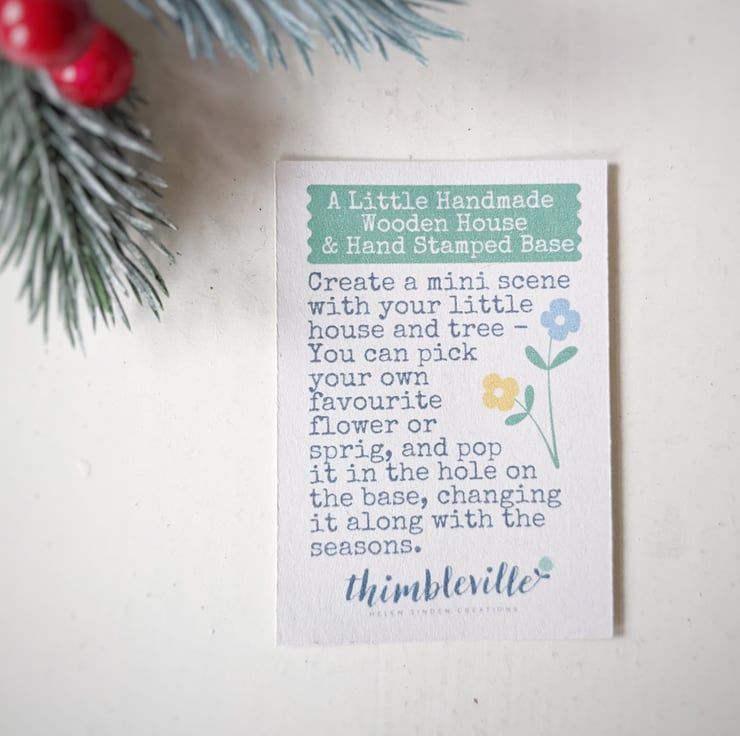 A Little Handmade
Wooden House
& Hand Stamped Base
Create a mini scene
with your little
house and tree –
You can pick
your own
favourite
flower or
sprig, and pop
it in the hole on
the base, changing
it along with the
seasons.
thimbleville
HELEN SINDEN CREATIONS